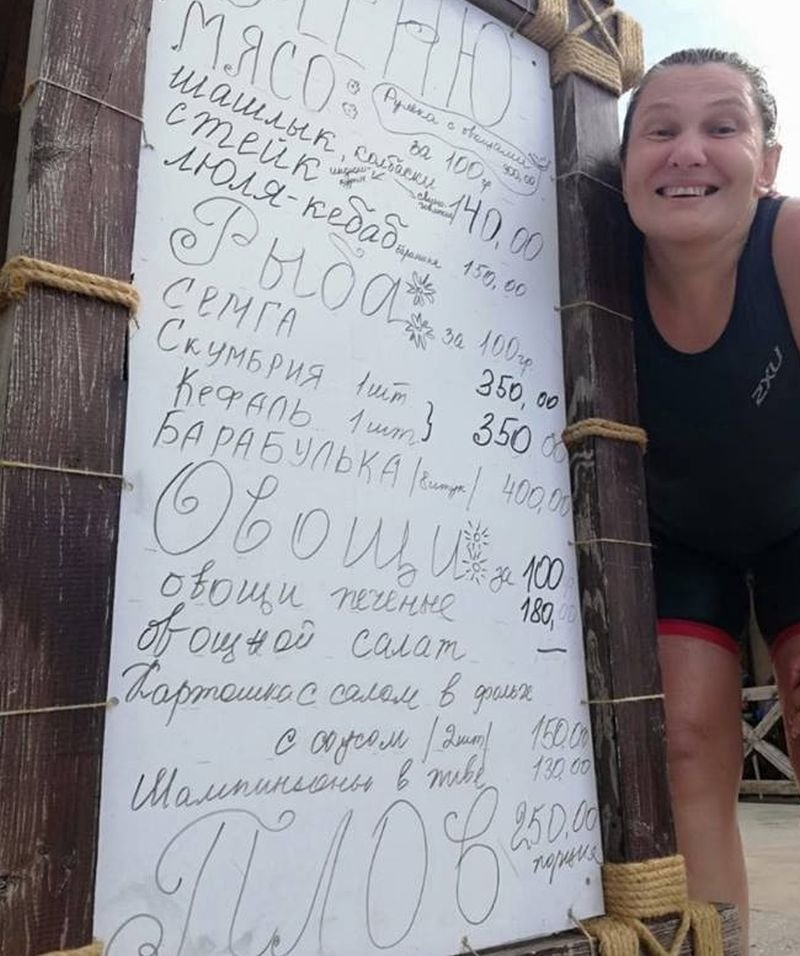 МЕНЮ
МЯСО:
Рулька с овощами
400,00
за 100г
шашлык, колбаски
стейк 140,00
люля-кебаб баранина 150,00
Рыба
за 100гр
СЕМГА 350,00
Скумбрия 1шт
Кефаль 1шт } 350 00
БАРАБУЛЬКА /8штук/ 400,00
Овощи за 100
овощи печеные 180,00
овощной салат —
Картошка с салом в фольге
с соусом /2шт/ 150,00
Шампиньоны в 130,00
ПЛОВ 250,00
порция
2XU